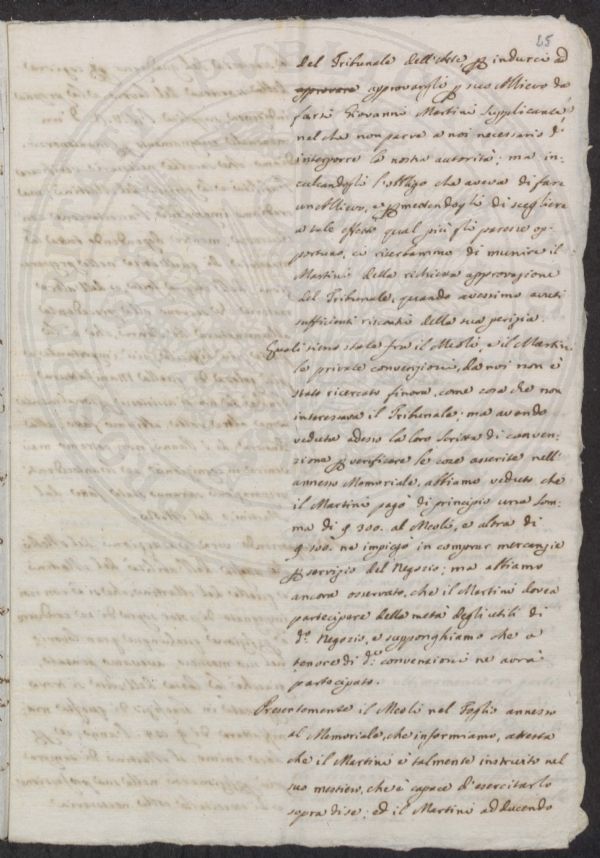 45
del Tribunale dell'Arte p indurci ad
aprovare approvargli p suo Allievo da
farsi Giovanni Martini supplicante
nel che non parve a noi necessario d'
interporre la nostra autorità; ma in:
culcandogli l'obbligo che aveva di fare
un Allievo, e pmettendogli di scegliere
a tale effetto qual più gli paresse op:
portuno, ci riserbammo di munire il
Martini della richiesta approvazione
del Tribunale, quando avessimo avuti
sufficienti riscontri della sua perizia.
Quali sieno state fra il Meoli, e il Martini
le private convenzioni, da noi non è
stato ricercato finora, come cosa che non
interessava il Tribunale; ma avendo
veduta adesso la loro scritta di conven:
zione p verificare le cose asserite nell'
annesso Memoriale, abbiamo veduto che
il Martini pagò di principio una som:
ma di 300. al Meoli, e altra di
100. ne impiegò in comprar mercanzie
p servizio del Negozio; ma abbiamo
ancora osservato, che il Martini dovea
partecipare della metà degli utili di
d.o Negozio, e supponghiamo che a
tenore di d.e convenzioni ne avrà
partecipato.
Presentemente il Meoli nel Foglio annesso
al Memoriale, che informiamo, attesta
che il Martini è talmente instruito nel
suo mestiero, che è capace d'esercitarlo
sopra di se; ed il Martini adducendo